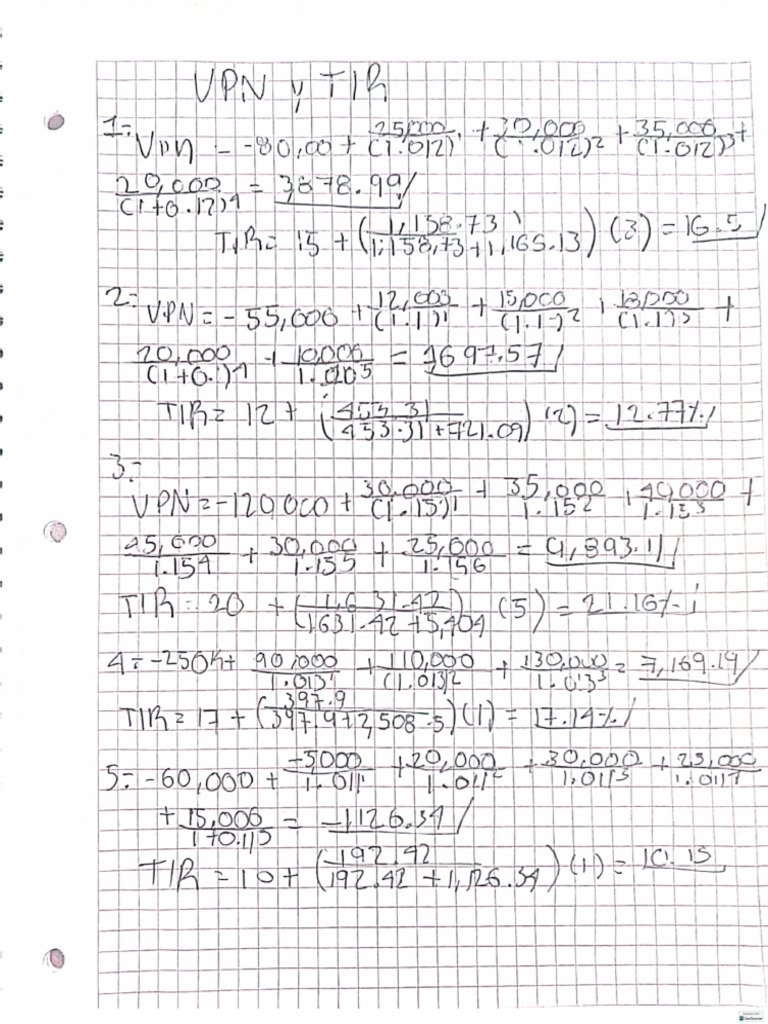 VPN y TIR
1=
VPN = -80,00 + 25,000/(1.012)¹ + 30,000/(1.012)² + 35,000/(1.012)³ +
20,000/(1+0.12)4 = 3,878.99/
TIR= 15 + (1,158.73/1,158,73+1,165.13) (3) = 16.5/
2= VPN = -55,000 + 12,000/(1.1)¹ + 15,000/(1.1)² + 18,000/(1.1)³ +
20,000/(1+0.1)4 + 10,000/1.0105 = 1697.57/
TIR= 12 + (453.31/453.31+721.09) (2) = 12.77%/
3=
VPN = -120,000 + 30,000/(1.15)¹ + 35,000/1.15² + 40,000/1.15³ +
45,000/1.154 + 30,000/1.155 + 25,000/1.156 = 9,893.11/
TIR = 20 + (1,631.42/1,631.42+5,404) (5) = 21.16%/
4= -250K+ 90,000/1.013¹ + 110,000/(1.013)2 + 130,000/1.013³ = 7,169.19/
TIR = 17 + (397.9/397.9+2,508.5) (1) = 17.14%/
5= -60,000 + -5000/1.011¹ + 20,000/1.011² + 30,000/1.0113 + 25,000/1.0114
+ 15,000/1+0.115 = -1,126.34/
TIR = 10 + (192.42/192.42 + 1,126.34) (1) = 10.15